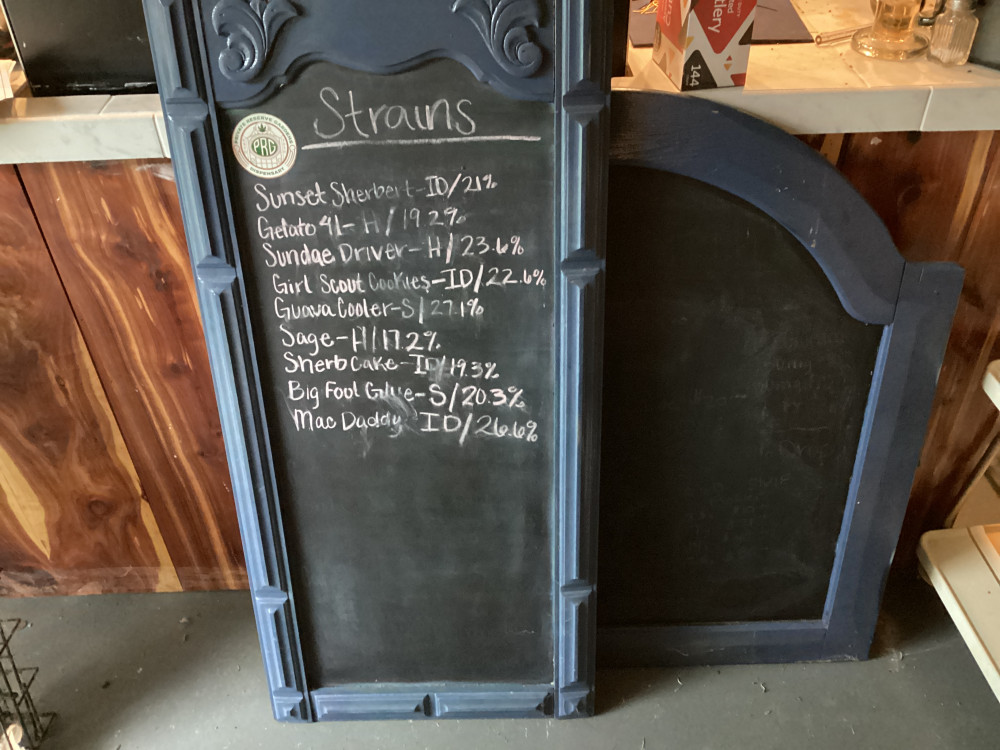 Strains
PRG
DISPENSARY
Sunset Sherbert-ID/21%
Gelato 41-H/19.2%
Sundae Driver-H/23.6%
Girl Scout Cookies-ID/22.6%
Guava Cooler-S/27.1%
Sage-H/17.2%
Sherb Cake-ID/19.3%
Big Foot Glue-S/20.3%
Mac Daddy ID/26.6%
144